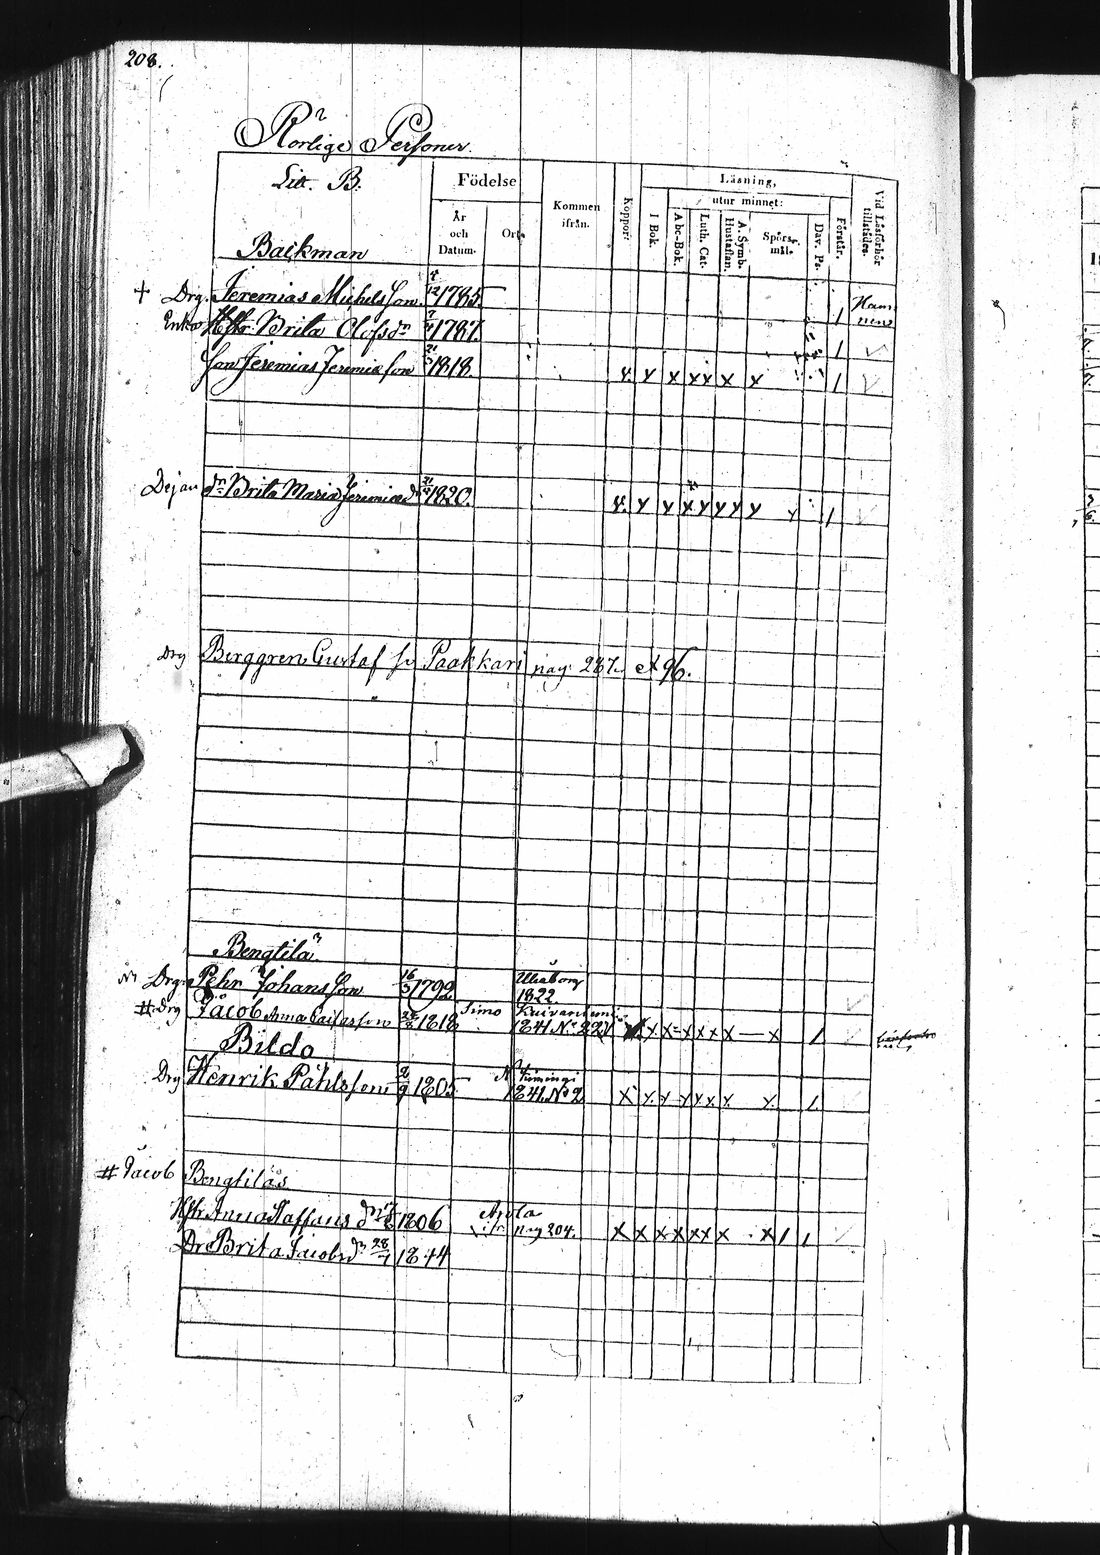 208.
Rörlige Personer
Litt. B.
Födelse
År och Datum.
Ort.
Kommen ifrån.
Koppor:
Läsning,
I Bok.
utur minnet:
Abc-Bok.
Luth. Cat.
A. Symb. Hustaflan.
Spörsmål.
Dav. Ps.
Förstår.
Vid Läsförhör tillstädes.
Backman
+ Drg. Jeremias Michelsson 4/12 1785
Enka Hstr Brita Olofsdr 1787.
Son Jeremias Jeremiæ son 21/3 1818. v. x x x x x x 1
Dejan dr Brita Maria Jeremiæ d. 1820. v. x x x x x x x x 1
Drg Berggren Gustaf se Paakkari pag. 237 et 96.
Bengtilä
Drg Pehr Johansson 16/3 1792 Uleåborg 1822
# Drg Jacob 1818 Simo Kuivaniemi 1841 No x x x x x x — x 1
Bildo
Drg Henrik Påhlsson 2/9 1805 Kiminge 1841. No 2 x x x x x x x x 1
# Jacob Bengtiläs
Hstr Anna Staffans dr 1806 ifr. pag 204. x x x x x x x x 1 1
Dr Brita Jacobsdr 28/7 1844